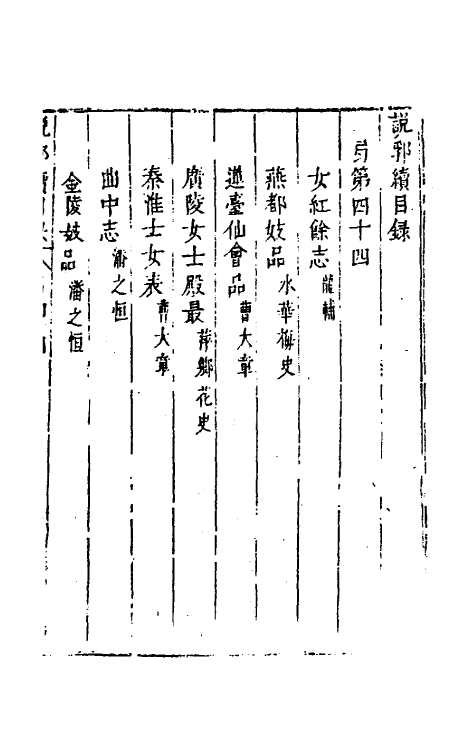 說郛續目錄
弓第四十四
女紅餘志 龍輔
燕都妓品 冰華梅史
蓮臺仙會品 曹大章
廣陵女士殿最 萍鄉花史
秦淮士女表 曹大章
曲中志 潘之恒
金陵妓品 潘之恒